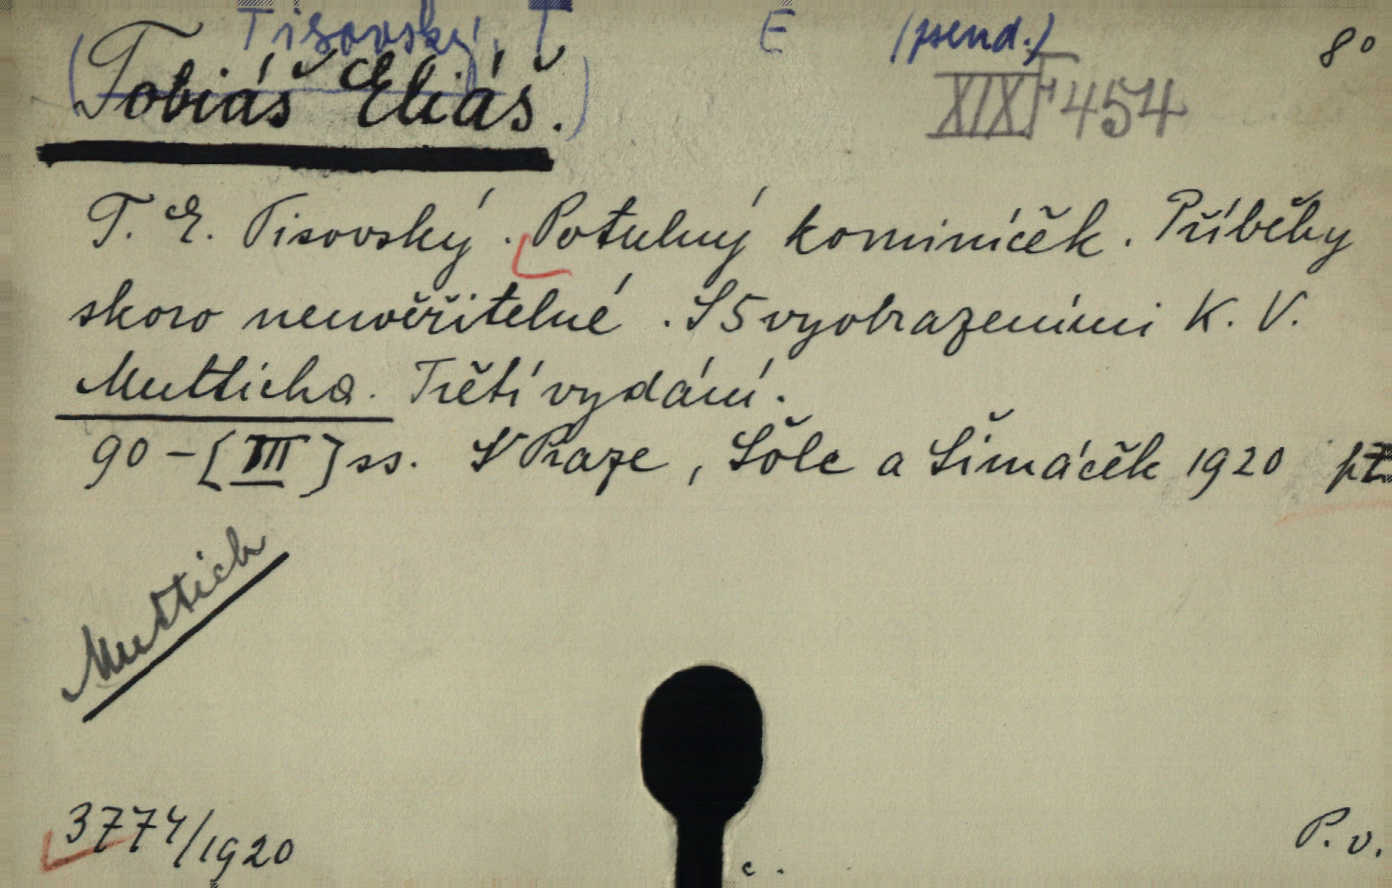 Tisovský, T E (pseud.) 8°
(Tobiáš Eliáš.) XIX F 454
T. E. Tisovský. Potulný kominíček. Příběhy
skoro neuvěřitelné. S 5 vyobrazeními K. V.
Mutticha. Třetí vydání.
90-[III] ss. V Praze, Šolc a Šimáček 1920
Muttich
3774/1920 P. v.
c.